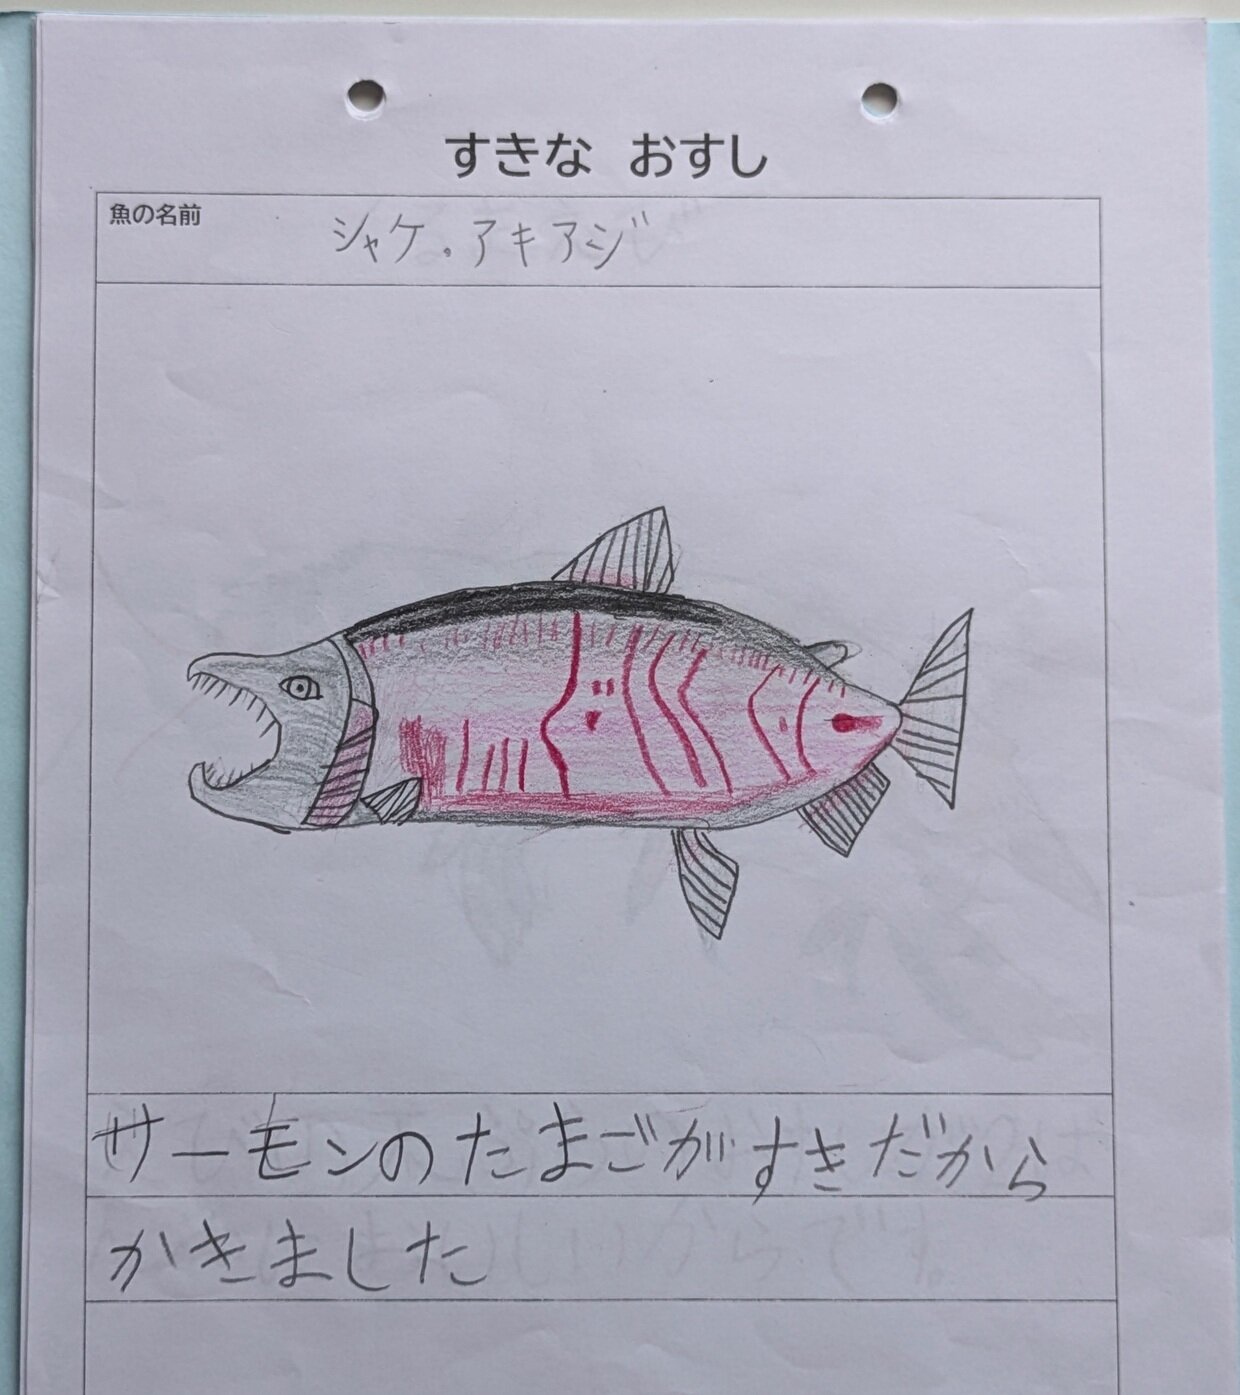 すきな おすし
魚の名前
シャケ。アキアジ
サーモンのたまごがすきだから
かきました